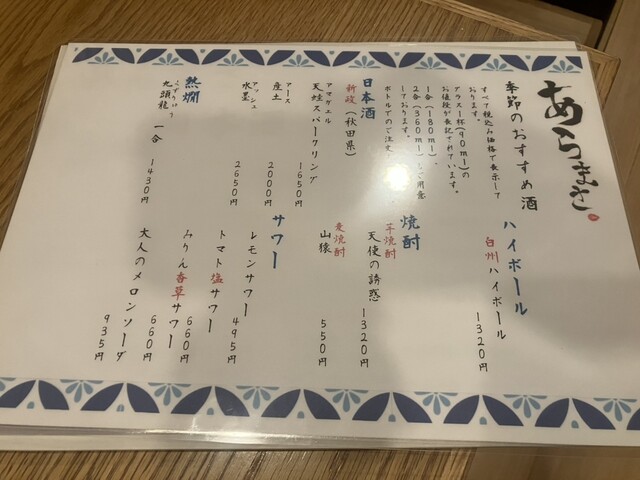 あらまさ
季節のおすすめ酒
すべて税込み価格で表示して
おります。
グラス1杯(90ml)の
お値段が表記されています。
1合(180ml)、
2合(360ml)もご用意
しております。
ボトルでのご注文
日本酒
新政(秋田県)
アマガエル
天蛙スパークリング
1650円
アース
産土
2000円
アッシュ
水墨
2650円
然燗
くずりゅう
九頭龍
一合
1430円
ハイボール
白州ハイボール
1320円
焼酎
芋焼酎
天使の誘惑
1320円
麦焼酎
山猿
550円
サワー
レモンサワー
495円
トマト塩サワー
660円
みりん香草サワー
660円
大人のメロンソーダ
935円